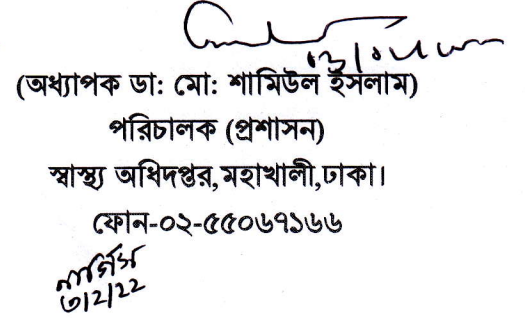 (অধ্যাপক ডা: মো: শামিউল ইসলাম)
পরিচালক (প্রশাসন)
স্বাস্থ্য অধিদপ্তর,মহাখালী,ঢাকা।
ফোন-০২-৫৫০৬৭১৬৬
নার্গিস
৩/2/22